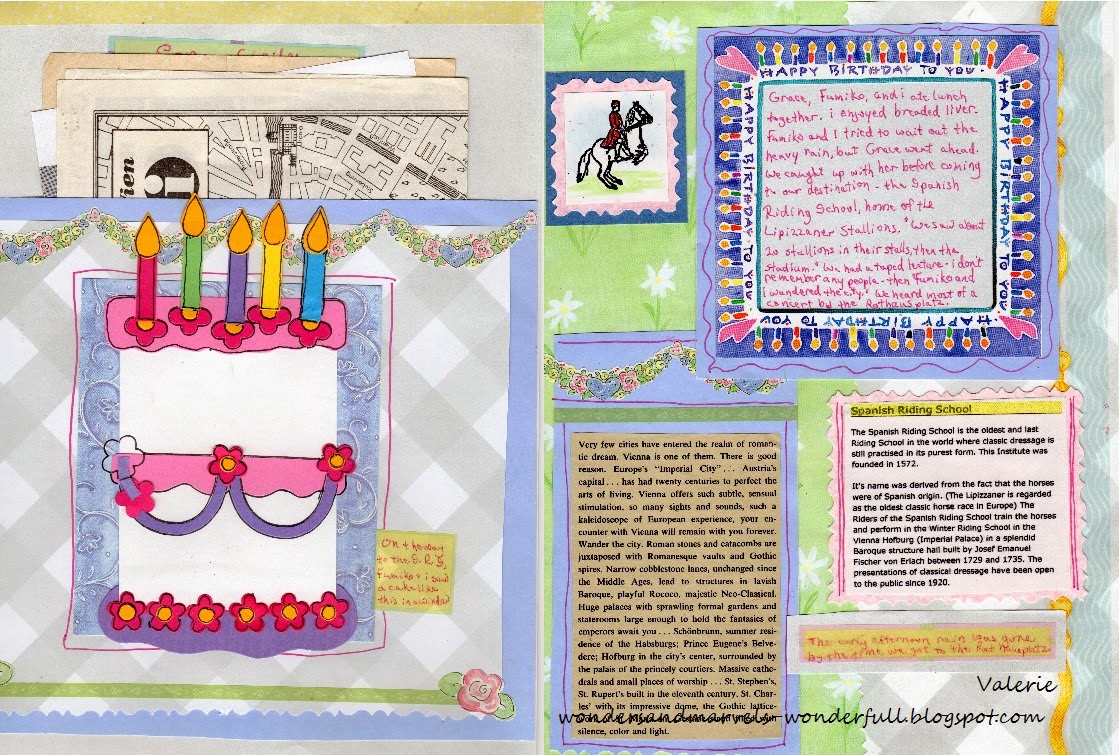 Wien
On + heading
to the S.R.S.
Fumiko + i saw
a cake like
this in a window
HAPPY BIRTHDAY TO YOU
HAPPY BIRTHDAY TO YOU
HAPPY BIRTHDAY TO YOU
HAPPY BIRTHDAY TO YOU
Grace, Fumiko, and i ate lunch
together. i enjoyed breaded liver.
Fumiko and I tried to wait out the
heavy rain, but Grace went ahead.
We caught up with her before coming
to our destination - the Spanish
Riding School, home of the
Lipizzaner Stallions. "We saw about
20 stallions in their stalls, then the
stadium." We had a taped lecture - i don't
remember any people - then "Fumiko and
i wandered the city." We heard most of a
concert by the Rathausplatz.
Very few cities have entered the realm of roman-
tic dream. Vienna is one of them. There is good
reason. Europe's "Imperial City" . . . Austria's
capital . . . has had twenty centuries to perfect the
arts of living. Vienna offers such subtle, sensual
stimulation, so many sights and sounds, such a
kaleidoscope of European experience, your en-
counter with Vienna will remain with you forever.
Wander the city. Roman stones and catacombs are
juxtaposed with Romanesque vaults and Gothic
spires. Narrow cobblestone lanes, unchanged since
the Middle Ages, lead to structures in lavish
Baroque, playful Rococo, majestic Neo-Classical.
Huge palaces with sprawling formal gardens and
staterooms large enough to hold the fantasies of
emperors await you . . . Schönbrunn, summer resi-
dence of the Habsburgs; Prince Eugene's Belve-
dere; Hofburg in the city's center, surrounded by
the palais of the princely courtiers. Massive cathe-
drals and small places of worship . . . St. Stephen's,
St. Rupert's built in the eleventh century, St. Char-
les' with its impressive dome, the Gothic lattice-
with
silence, color and light.
Spanish Riding School
The Spanish Riding School is the oldest and last
Riding School in the world where classic dressage is
still practised in its purest form. This Institute was
founded in 1572.
It's name was derived from the fact that the horses
were of Spanish origin. (The Lipizzaner is regarded
as the oldest classic horse race in Europe) The
Riders of the Spanish Riding School train the horses
and perform in the Winter Riding School in the
Vienna Hofburg (Imperial Palace) in a splendid
Baroque structure hall built by Josef Emanuel
Fischer von Erlach between 1729 and 1735. The
presentations of classical dressage have been open
to the public since 1920.
The early afternoon rain was gone
by the time we got to the Rathausplatz.
Valerie
wondersandmarvels-wonderfull.blogspot.com